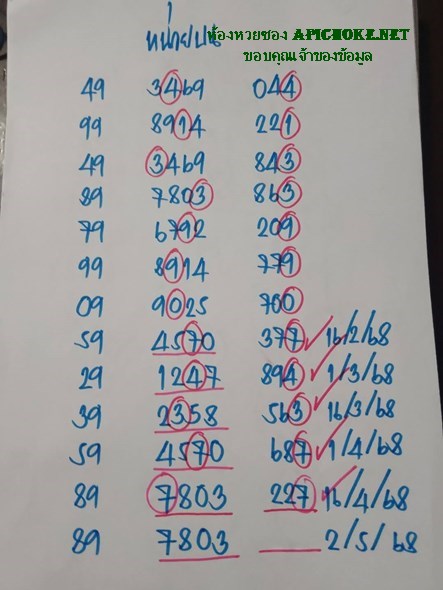 ห้องหวยซอง APICHOKE.NET
ขอบคุณเจ้าของข้อมูล
หน่วยบน
49 3469 044
99 8914 221
49 3469 843
89 7803 863
79 6792 209
99 8914 779
09 9025 700
59 4570 377 16/2/68
29 1247 894 1/3/68
39 2358 563 16/3/68
59 4570 687 1/4/68
89 7803 227 16/4/68
89 7803 ___ 2/5/68